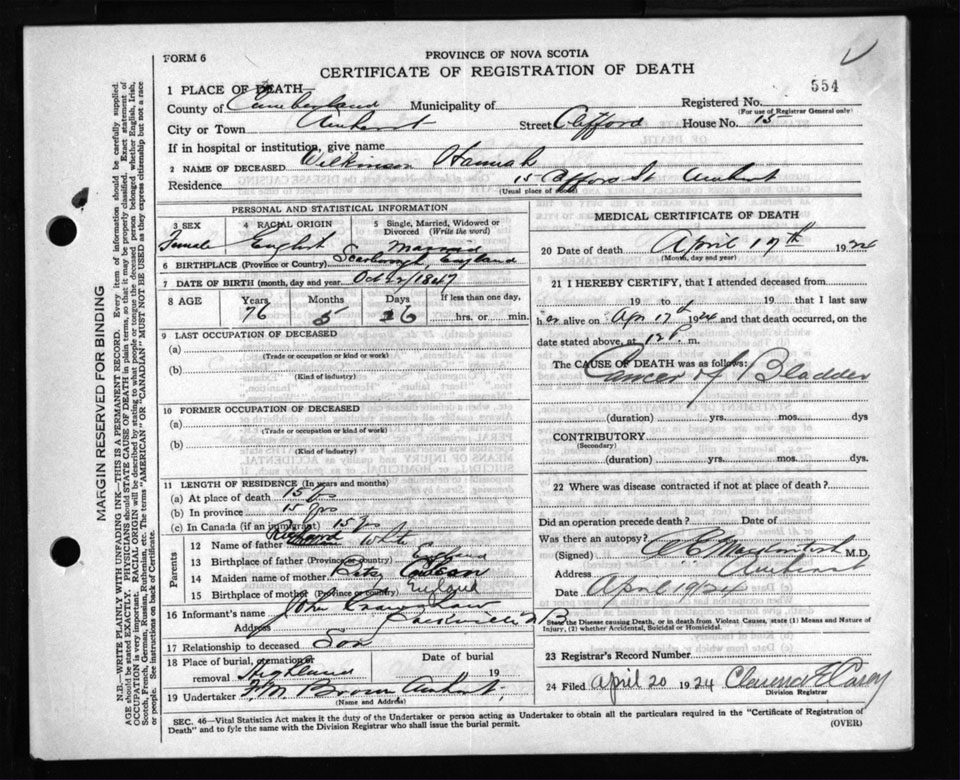 FORM 6
PROVINCE OF NOVA SCOTIA
CERTIFICATE OF REGISTRATION OF DEATH
554
1 PLACE OF DEATH
County of Cumberland Municipality of Registered No.
(For use of Registrar General only)
City or Town Amherst Street Clifford House No. 15
If in hospital or institution, give name
2 NAME OF DECEASED Wilkinson Hannah
Residence 15 Clifford St Amherst
(Usual place of abode)
PERSONAL AND STATISTICAL INFORMATION
3 SEX 4 RACIAL ORIGIN 5 Single, Married, Widowed or Divorced (Write the word)
Female English Married
6 BIRTHPLACE (Province or Country) Scarborough, England
7 DATE OF BIRTH (month, day and year) Oct 1847
8 AGE Years Months Days If less than one day,
76 5 26 hrs. or min.
9 LAST OCCUPATION OF DECEASED
(a)
(Trade or occupation or kind or work)
(b)
(Kind of industry)
10 FORMER OCCUPATION OF DECEASED
(a)
(Trade or occupation or kind or work)
(b)
(Kind of industry)
11 LENGTH OF RESIDENCE (In years and months)
(a) At place of death 15 yrs
(b) In province 15 yrs
(c) In Canada (if an immigrant) 15 yrs
Parents
12 Name of father Richard White
13 Birthplace of father (Province or Country) England
14 Maiden name of mother Betsy
15 Birthplace of mother (Province or Country) England
16 Informant's name John Crawshaw
Address Sackville N B
17 Relationship to deceased Son
18 Place of burial, cremation or removal Highland Date of burial 19
19 Undertaker F. M. Brown Amherst
(Name and Address)
MEDICAL CERTIFICATE OF DEATH
20 Date of death April 17th 1924
(Month, day and year)
21 I HEREBY CERTIFY, that I attended deceased from
19 to 19 that I last saw
her alive on Apr 17th 1924 and that death occurred, on
date stated above, at 12 P. m.
The CAUSE OF DEATH was as follows:
Cancer of Bladder
(duration) yrs. mos. dys
CONTRIBUTORY
(Secondary)
(duration) yrs. mos. dys.
22 Where was disease contracted if not at place of death?
Did an operation precede death? Date of
Was there an autopsy?
(Signed) Mackintosh M.D.
Address Amherst
Date April 19/24
State the Disease causing Death, or in death from Violent Causes, state (1) Means and Nature of
Injury, (2) whether Accidental, Suicidal or Homicidal.
23 Registrar's Record Number
24 Filed April 20 1924 Clarence E Casey
Division Registrar
SEC. 46—Vital Statistics Act makes it the duty of the Undertaker or person acting as Undertaker to obtain all the particulars required in the "Certificate of Registration of
Death" and to fyle the same with the Division Registrar who shall issue the burial permit.
(OVER)
MARGIN RESERVED FOR BINDING
N.B.—WRITE PLAINLY WITH UNFADING INK—THIS IS A PERMANENT RECORD. Every item of information should be carefully supplied.
AGE should be stated EXACTLY. PHYSICIANS should STATE CAUSE OF DEATH in plain terms, so that it may be properly classified. Exact statement of
OCCUPATION is very important. RACIAL ORIGIN will be described by stating to what people or tongue the deceased person belonged whether English, Irish,
Scotch, French, German, Russian, Ruthenian, etc. The terms "AMERICAN" or "CANADIAN" MUST NOT BE USED as they express citizenship but not a race
or people. See instructions on back of Certificate.